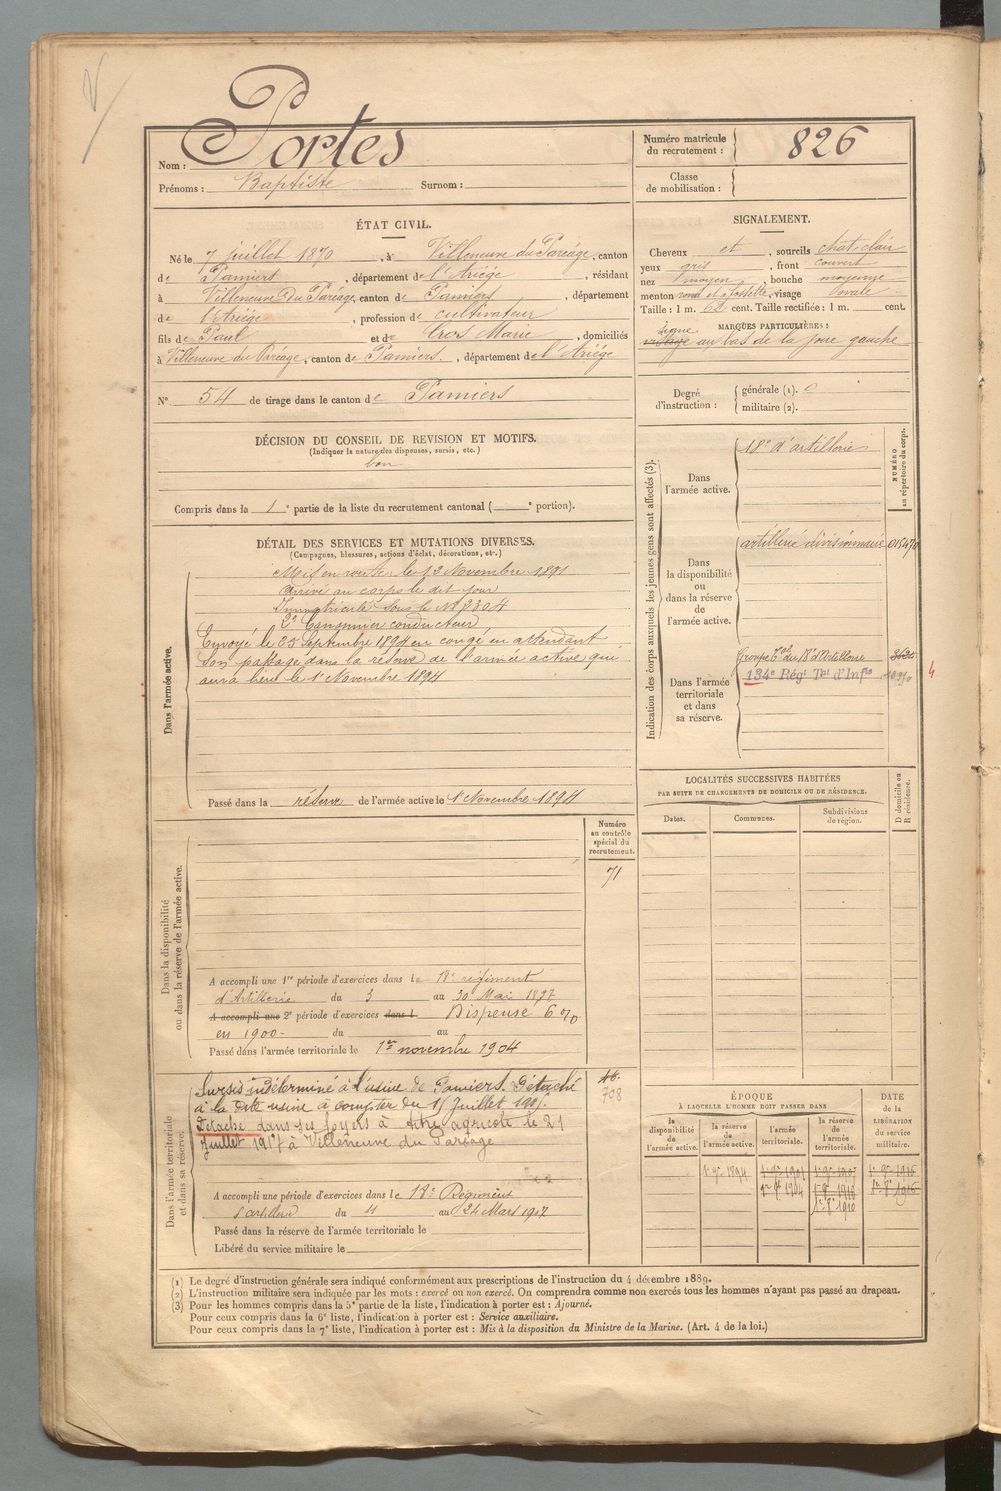 Portes
Nom :
Prénoms : Baptiste Surnom :
Numéro matricule du recrutement : 826
Classe de mobilisation :
ÉTAT CIVIL.
Né le 7 juillet 1870, à Villeneuve du Paréage, canton
de Pamiers, département de l'Ariége, résidant
à Villeneuve du Paréage, canton de Pamiers, département
de l'Ariége, profession de cultivateur
fils de Paul et de Cros Marie, domiciliés
à Villeneuve du Paréage, canton de Pamiers, département de l'Ariége
N° 54 de tirage dans le canton de Pamiers
SIGNALEMENT.
Cheveux et, sourcils chat-clair
yeux gris, front couvert
nez moyen, bouche moyenne
menton rond et à fossette, visage ovale
Taille : 1 m. 62 cent. Taille rectifiée : 1 m. cent.
MARQUES PARTICULIÈRES :
signe
visage au bas de la joue gauche
Degré d'instruction : générale (1). militaire (2).
DÉCISION DU CONSEIL DE REVISION ET MOTIFS.
(Indiquer la nature des dispenses, sursis, etc.)
bon
Compris dans la 1e partie de la liste du recrutement cantonal ( e portion).
DÉTAIL DES SERVICES ET MUTATIONS DIVERSES.
(Campagnes, blessures, actions d'éclat, décorations, etc.)
Dans l'armée active.
Mis en route le 12 Novembre 1891
Arrivé au corps le dit jour
Immatriculé sous le N° 3304
2e Canonnier conducteur
Envoyé le 25 Septembre 1894 en congé en attendant
son passage dans la réserve de l'armée active qui
aura lieu le 1er Novembre 1894
Passé dans la réserve de l'armée active le 1er Novembre 1894
Indication des corps auxquels les jeunes gens sont affectés (3).
NUMÉRO au répertoire du corps.
Dans l'armée active.
18e d'artillerie
Dans la disponibilité ou dans la réserve de l'armée active.
artillerie divisionnaire
Dans l'armée territoriale et dans sa réserve.
Groupe Tal du 18e d'Artillerie
134e Régt Tal d'Infie
4
LOCALITÉS SUCCESSIVES HABITÉES
PAR SUITE DE CHANGEMENTS DE DOMICILE OU DE RÉSIDENCE.
Dates. Communes. Subdivisions de région.
D domicile ou R résidence.
Numéro au contrôle spécial du recrutement.
71
Dans la disponibilité ou dans la réserve de l'armée active.
A accompli une 1re période d'exercices dans le 18e régiment
d'Artillerie du 3 au 30 Mai 1897
A accompli une 2e période d'exercices dans l Dispensé 6 %
en 1900 - du au
Passé dans l'armée territoriale le 1er novembre 1904
Dans l'armée territoriale et dans sa réserve.
Sursis indéterminé à l'usine de Pamiers. Détaché
à la dite usine à compter du 15 Juillet
Détaché dans ses foyers à titre agricole le 21
juillet 1917 à Villeneuve du Paréage
708
A accompli une période d'exercices dans le 18e Régiment
d'artillerie du 11 au 24 Mars 1907
Passé dans la réserve de l'armée territoriale le
Libéré du service militaire le
ÉPOQUE
À LAQUELLE L'HOMME DOIT PASSER DANS
la disponibilité de l'armée active.
la réserve de l'armée active.
l'armée territoriale.
la réserve de l'armée territoriale.
DATE de la LIBÉRATION du service militaire.
1er 9e 1894 1er 9e 1904 1er 9e 1916
(1) Le degré d'instruction générale sera indiqué conformément aux prescriptions de l'instruction du 4 décembre 1889.
(2) L'instruction militaire sera indiquée par les mots : exercé ou non exercé. On comprendra comme non exercés tous les hommes n'ayant pas passé au drapeau.
(3) Pour les hommes compris dans la 5e partie de la liste, l'indication à porter est : Ajourné.
Pour ceux compris dans la 6e liste, l'indication à porter est : Service auxiliaire.
Pour ceux compris dans la 7e liste, l'indication à porter est : Mis à la disposition du Ministre de la Marine. (Art. 4 de la loi.)